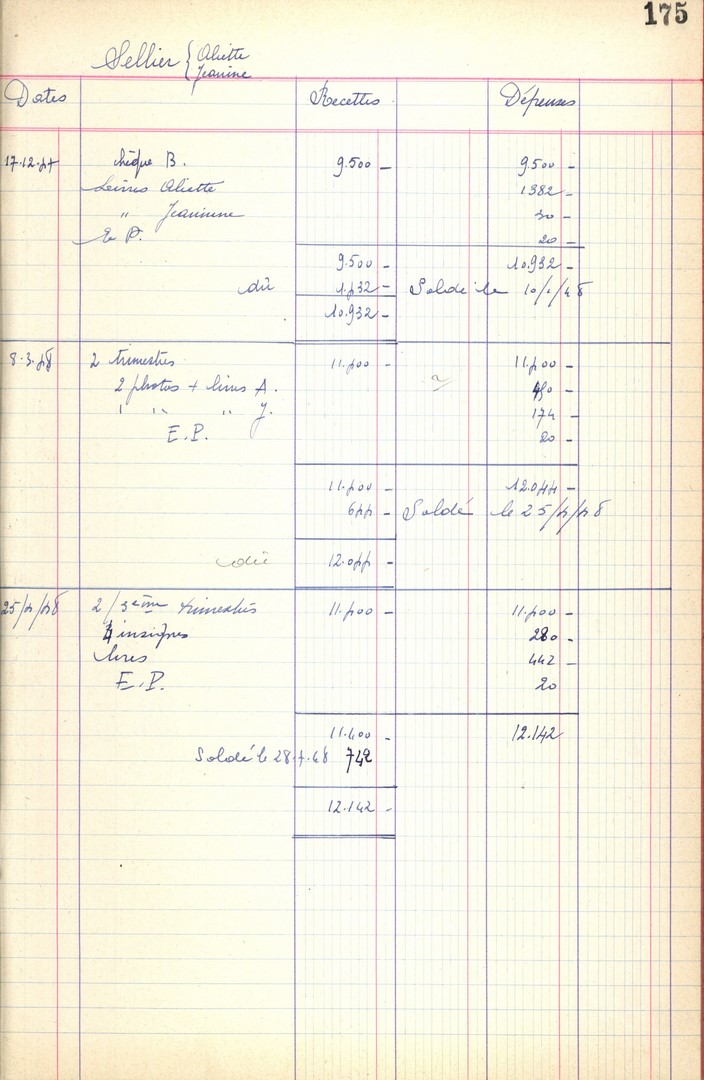 175
Sellier { Aliette
Jeanine
Dates Recettes Dépenses
17.12.47 chèque B. 9.500 - 9500 -
Livres Aliette 1382 -
" Jeannine 30 -
E P. 20 -
9.500 - 10.932 -
dû 1.432 - Soldé le 10/1/48
10.932 -
8.3.48 2 trimestres 11.400 - 11.400 -
2 photos + livres A. 450 -
1 " " J. 174 -
E.P. 20 -
11.400 - 12.044 -
644 - Soldé le 25/4/48
dû 12.044 -
25/4/48 2/3ème trimestres 11.400 - 11.400 -
4 insignes 280 -
livres 442 -
E.P. 20
11.400 - 12.142
Soldé le 28.7.48 742
12.142 -